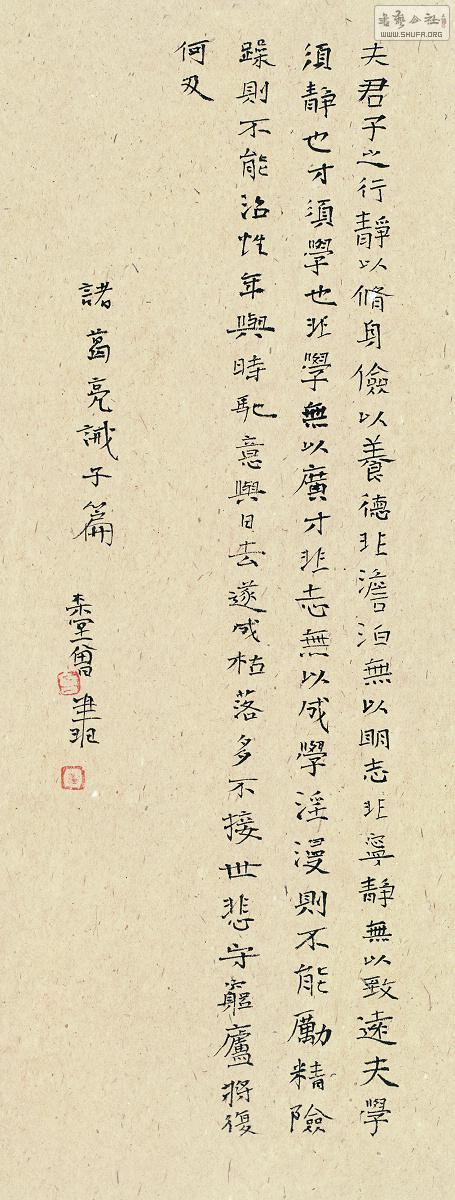 夫君子之行靜以脩身儉以養德非澹泊無以明志非寧靜無以致遠夫學
須靜也才須學也非學無以廣才非志無以成學淫漫則不能勵精險
躁則不能治性年與時馳意與日去遂成枯落多不接世悲守窮廬將復
何及
諸葛亮誡子篇
堂曾
书艺公社
WWW.SHUFA.ORG